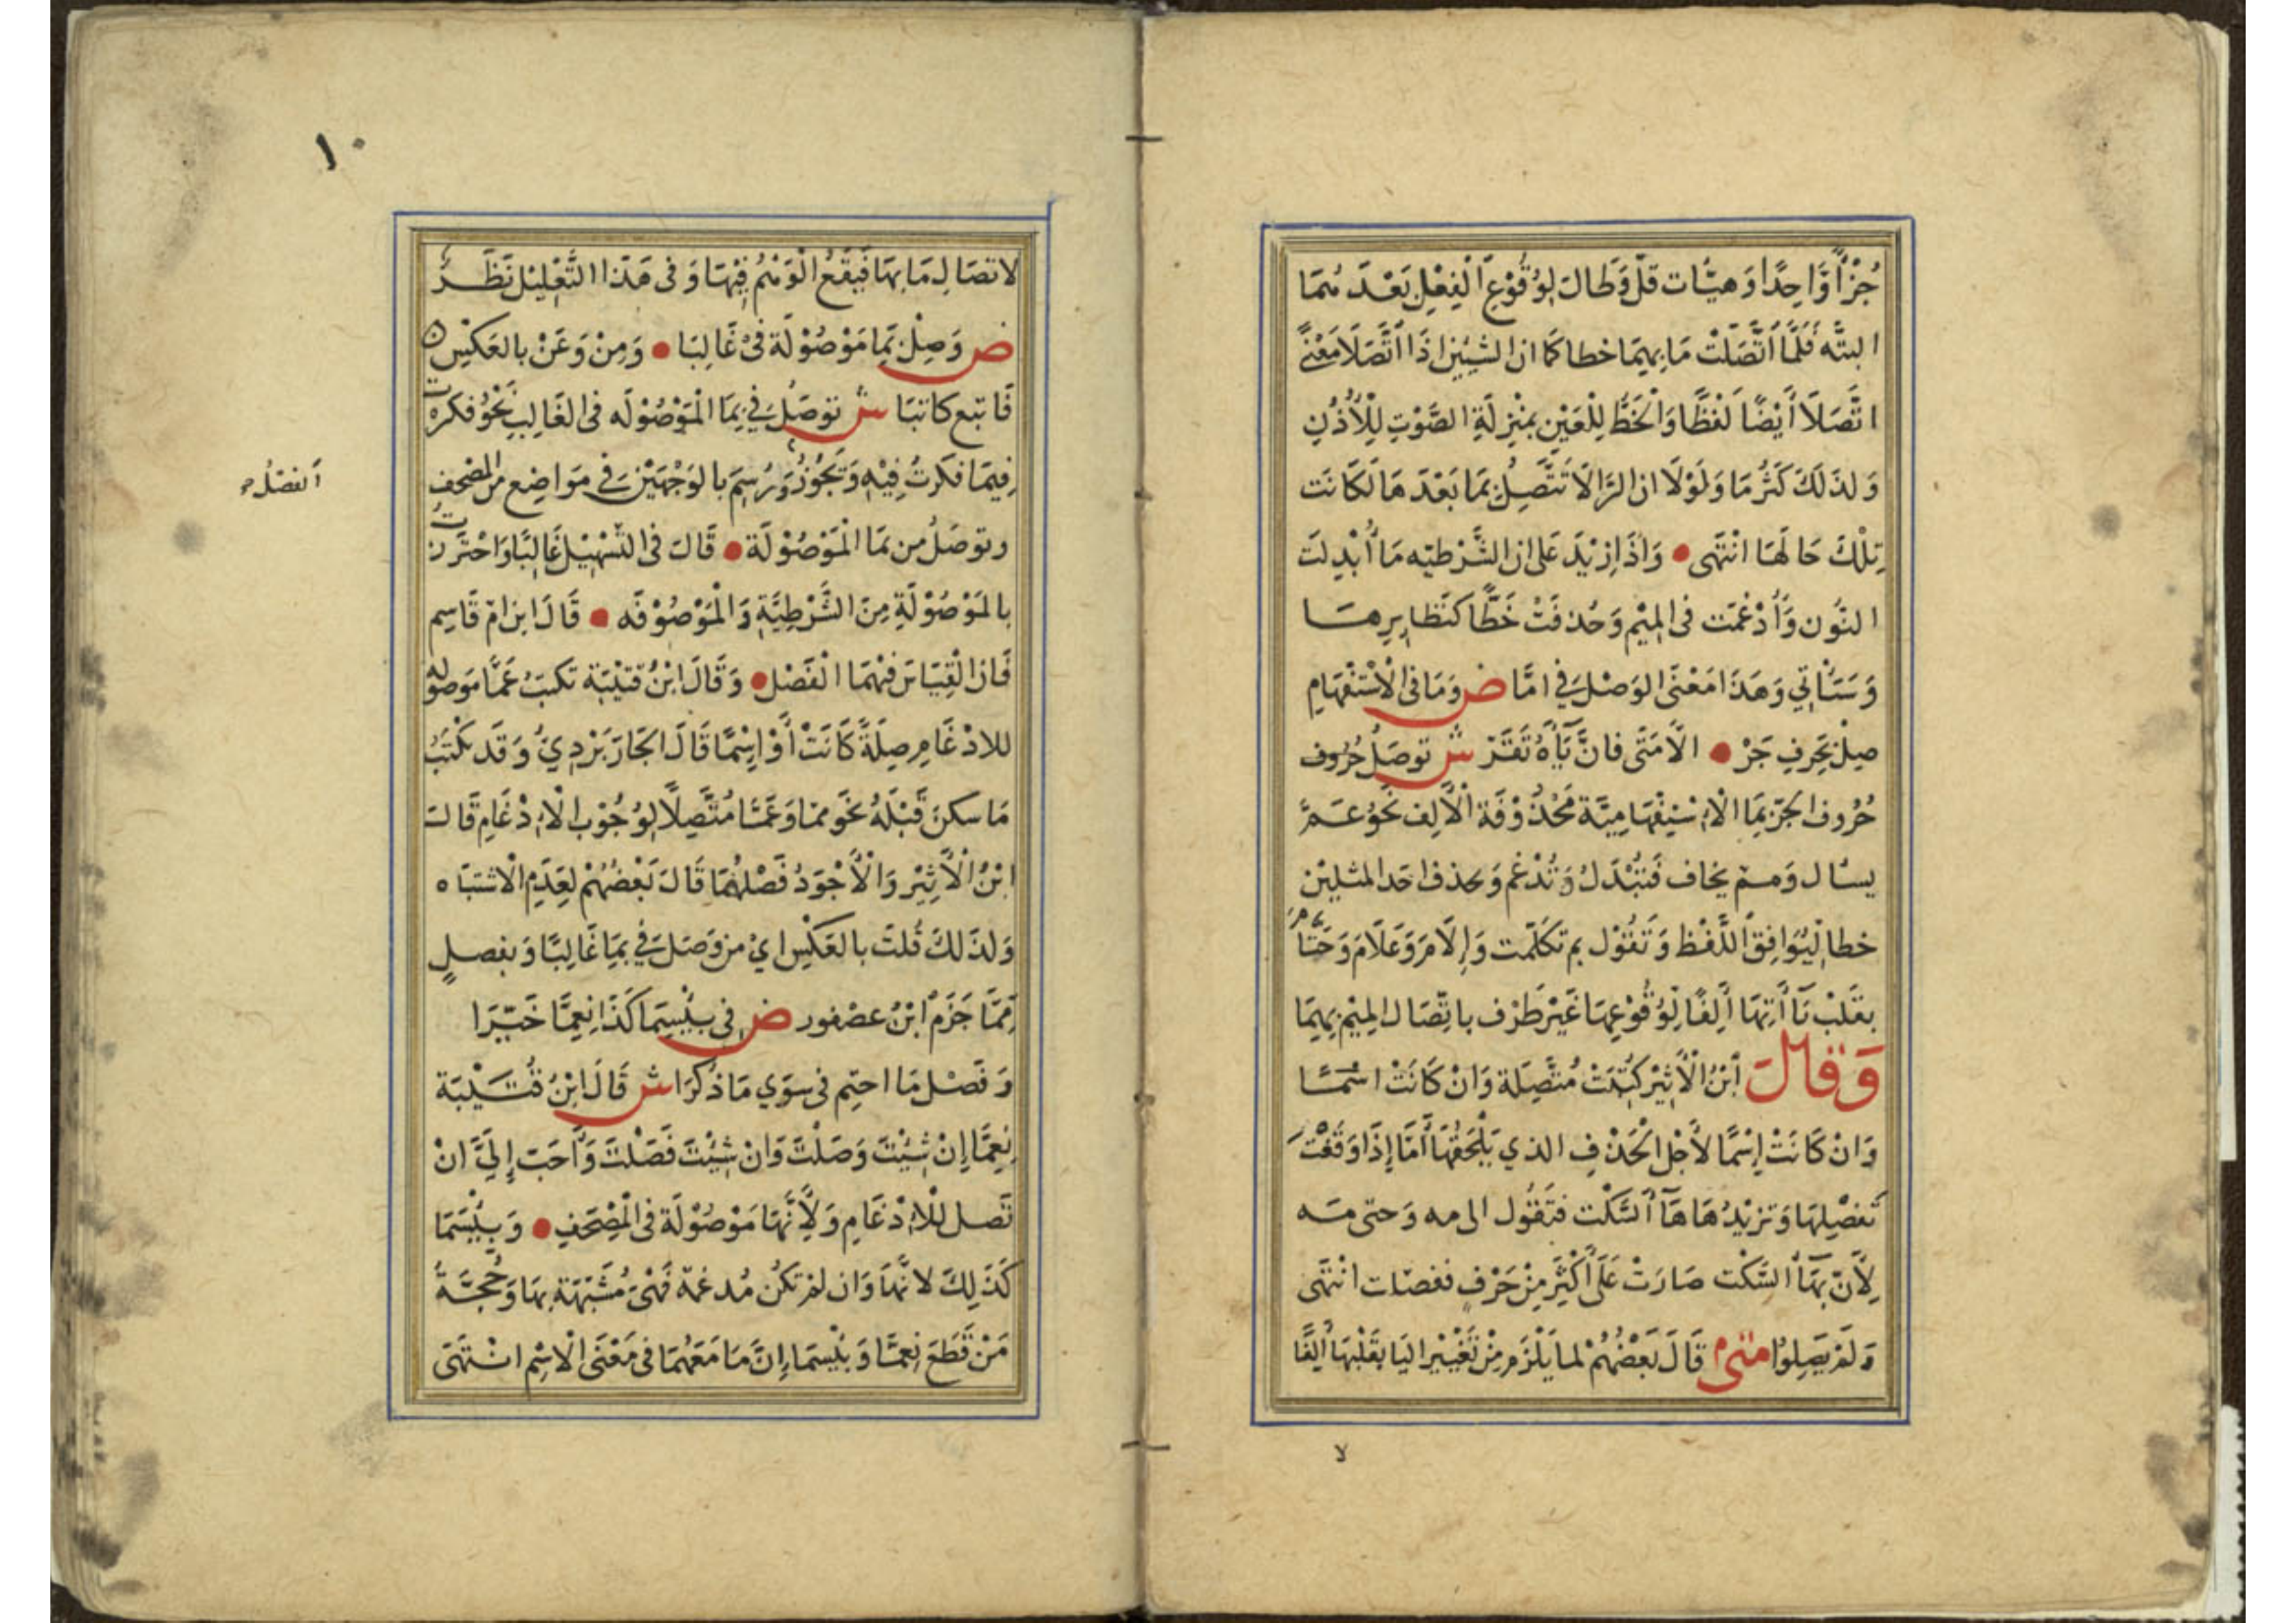 جُزْأً وَّاحِدًا وَهيئات قلّ وَطالَ لِوُقُوْعِ الْفِعْلِ بَعْدَ مُمَا
البتَّه فَلَمَّا اتَّصَلَتْ مَا بِهِمَا خطا كَمَا ان الشيئين اذَا اتَّصَلَا مَعْنًى
اتَّصَلَا أَيْضًا لَفْظًا وَالْخَطُّ لِلْعَيْنِ بِمَنْزِلَةِ الصَّوْتِ لِلْأُذُنِ
وَلذَلكَ كَثُرَ مَا وَلَوْلَا ان الرَّا لَا تَتَّصِلُ بِمَا بَعْدَ هَا لَكَانَت
تِلْكَ حَالَهَا انْتَهَى • وَاذَا زِيْدَ عَلى ان الشَّرْطيّه مَا أُبْدِلَت
النُّون وَأُدْغمَت فى الْمِيْمِ وَحُذفَتْ خَطًّا كنَظايِرِهَا
وَسَتَأتي وَهَذَا مَعْنَى الوَصْل فِي امَّا ض وَمَا فى الْاسْتفْهَامِ
صِلْ بِحَرفِ جَرْ • الَّا مَتَى فانَّ يَاْءَهُ تَقَرْ ش توصَلُ حُرُوف
حُرُوف الجَرّ بِمَا الْاِسْتِفْهَامِيَّة مَحْذُوْفَة الْأَلِف نَحْوُ عَمَّ
يسْال وَممّ يخاف فَتُبْدَلُ وَتُدْغَم وَيحذف احَد المثلين
خطا لِيُوَافِقَ اللَّفْظ وَتَقُوْل بم تكلّمت وَإلَامَ وَعَلَامَ وَحَتَّامَ
بِقَلْبِ يَاْأَتِهَا أَلِفًا لِوُقُوْعِهَا غَيْرَ طَرْف باتِّصَال الِميْم بِهِمَا
وَقَالَ ابْنُ الْأَثِيْرِ كُتِبَتْ مُتَّصِلَة وَانْ كَانَتْ اسْمًا
وَانْ كَانَتْ إِسْمًا لأَجْل الْحَذْفِ الذي يَلْحَقُهَا أَمَّا إِذَا وَقَفْتَ
تَفصِلهَا وَتزيْدُ هَا هَآ السَّكْت فتَقُوْل الى مه وَحتى مَه
لِأَنّ بِهَآ السَّكْت صَارَتْ عَلَى أَكْثَرَ مِنْ حَرْفٍ ففصلت انْتَهَى
وَلَمْ يَصِلوا متى قَالَ بَعْضُهُمْ لما يَلْزَم مِنْ تَغْيِيْر اليَا بِقَلْبِهَا أَلِفًا
لا
١٠
لاتصَالِ مَا بِهَا فَيَقَعُ الْوَهْمُ فِيْهَا وَفى هَذا التَّعْلِيْل نَظَرٌ
ض وَصِلْ بِمَا مَوْصُوْلَة فى غَالِبَا • وَمِنْ وَعَنْ بالعَكْسِ
فَاتبع كاتبَا ش توصَلُ فِي بِمَا الْمَوْصُوْلَه فى الغَالِبِ نَحْوُ فكرت
فِيمَا فكرتُ فِيْهِ وَتَجُوْزُ وَرُسِمَ بالوَجْهَيْنِ فِي مَوَاضِع من المصْحف
الفصلُ
وتوصَلُ من بمَا الْمَوْصُوْلَة • قَالَ فى التّسْهِيْل غَالِبًا وَاحْتَرَزت
بالمَوْصُوْلَةِ مِنَ الشَّرْطِيَّةِ وَالْمَوْصُوْفَه • قَالَ ابن امّ قَاسِم
فَان الْقِيَاسَ فيْهِمَا الْفَصْل • وَقَالَ ابْنُ قتَيْبَة تكتبُ عَمَّا مَوصولَه
للادْغَامِ صِلَةً كَانَتْ أَوْ إِسْمًا قَالَ الجَارَبَرْدِيُّ وَقَد تكْتَبُ
مَا سكنَ قَبْلَهُ نحْوَ ممّا وَعَمَّا مُتَّصِلًا لِوُجُوْب الْاِدْغَامِ قَالَ
ابْنُ الْأَثِيْرِ وَالْأَجْوَدُ فَصْلهُمَا قَالَ بَعْضُهُمْ لِعَدَمِ الْاشتبَاه
وَلذَلكَ قُلتُ بالعَكْسِ ايْ من وَصَل فِي بِمَا غَالِبًا وَبفصلٍ
مِمَّا جَزَمَ ابْنُ عصْفور ض فى بِئْسِمَا كَذَا نِعِمَّا خَيّرَا
وَفَصْل مَا احتِم فى سوَي مَا ذُكرَا ش قَالَ ابْنُ قُتَيْبَة
نِعِمَّا إِنْ شِئْتَ وَصَلْتَ وَانْ شِئْتَ فَصَلْتَ وَأَحَبّ إِلَيَّ انْ
تَّصل لْلاِدْغَامِ وَلِأَنَّهَا مَوْصُوْلَة فى الْمُصْحَفِ • وَبِئْسَمَا
كَذَلِكَ لانَّهَا وَان لمْ تكن مُدغمة فَهْيَ مُشَبّهَة بِهَا وَحُجَّةُ
مَنْ قَطَعَ نِعمَّا وَبئْسمَا إِنَّ مَا مَعَهُمَا فى مَعْنَى الْاسْم انْتَهَى